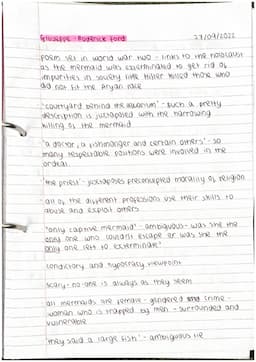 Giuseppe - Roderick Ford 27/09/2022
poem set in world war two - links to the holocaust
as the mermaid was exterminated to get rid of
impurities in society like hitler killed those who
did not fit the Aryan race
'courtyard behind the aquarium' - such a pretty
description is juxtaposed with the harrowing
killing of the mermaid
'a doctor, a fishmonger and certain others' - so
many respectable positions were involved in the
ordeal
'the priest' - juxtaposes preconcepted morality of religion
all of the different professions use their skills to
abuse and exploit others
"only captive mermaid" - ambiguous - was she the
only one who couldnt escape or was she the
only one left to exterminate"
and hypocrasy viewpoint
scary - no one is always as they seem
all mermaids are female - gendered crime -
woman who is trapped by men - surrounded and
vulnerable
'they said a large fish' - ambiguous lie